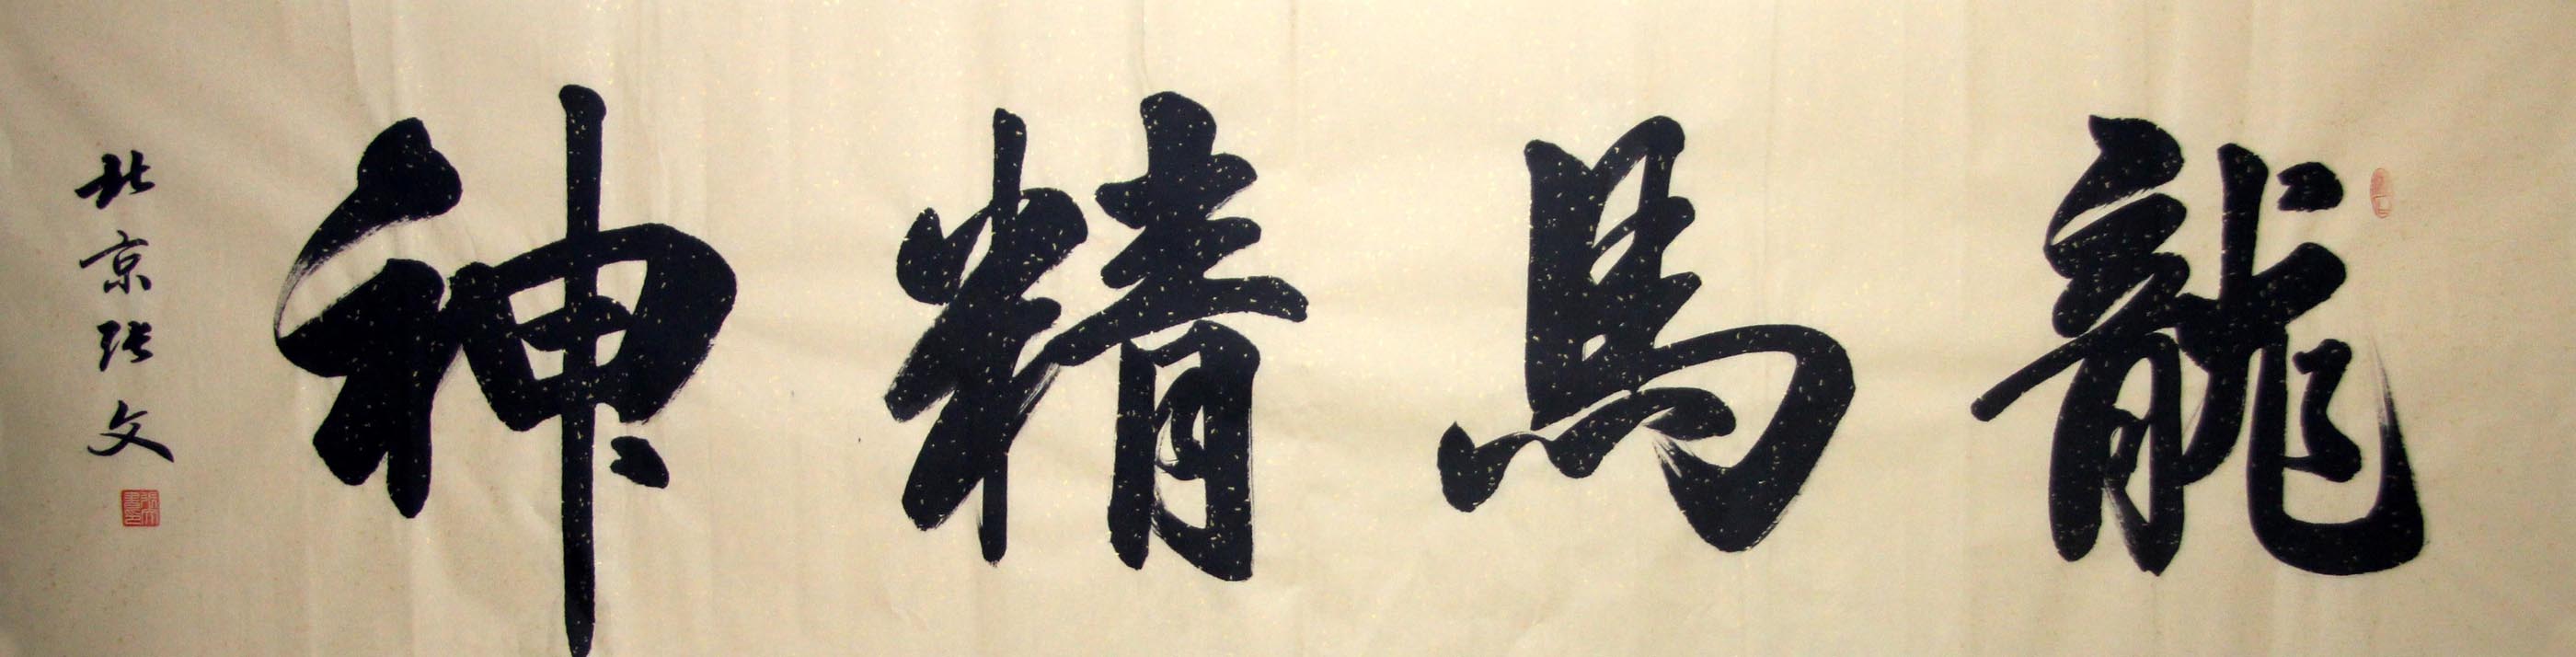 龍馬精神
北京張文